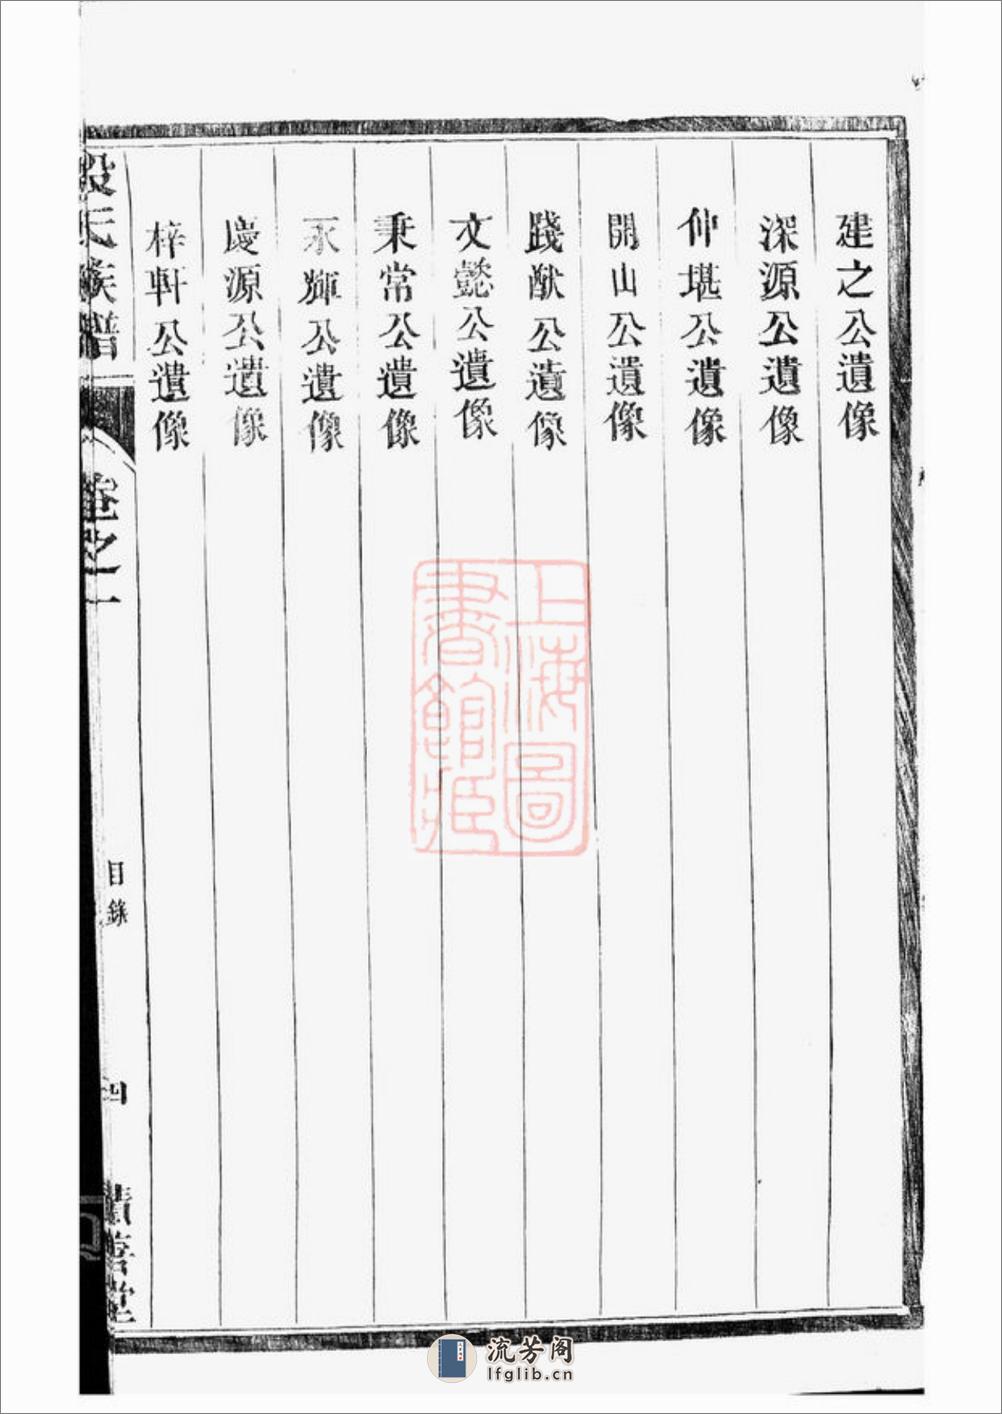 建之公遺像
深源公遺像
仲堪公遺像
開山公遺像
踐猷公遺像
文懿公遺像
秉常公遺像
永輝公遺像
慶源公遺像
梓軒公遺像
殷氏族譜
卷之一
目錄
四
積善堂
上海圖
書館藏
流芳阁
lfglib.cn